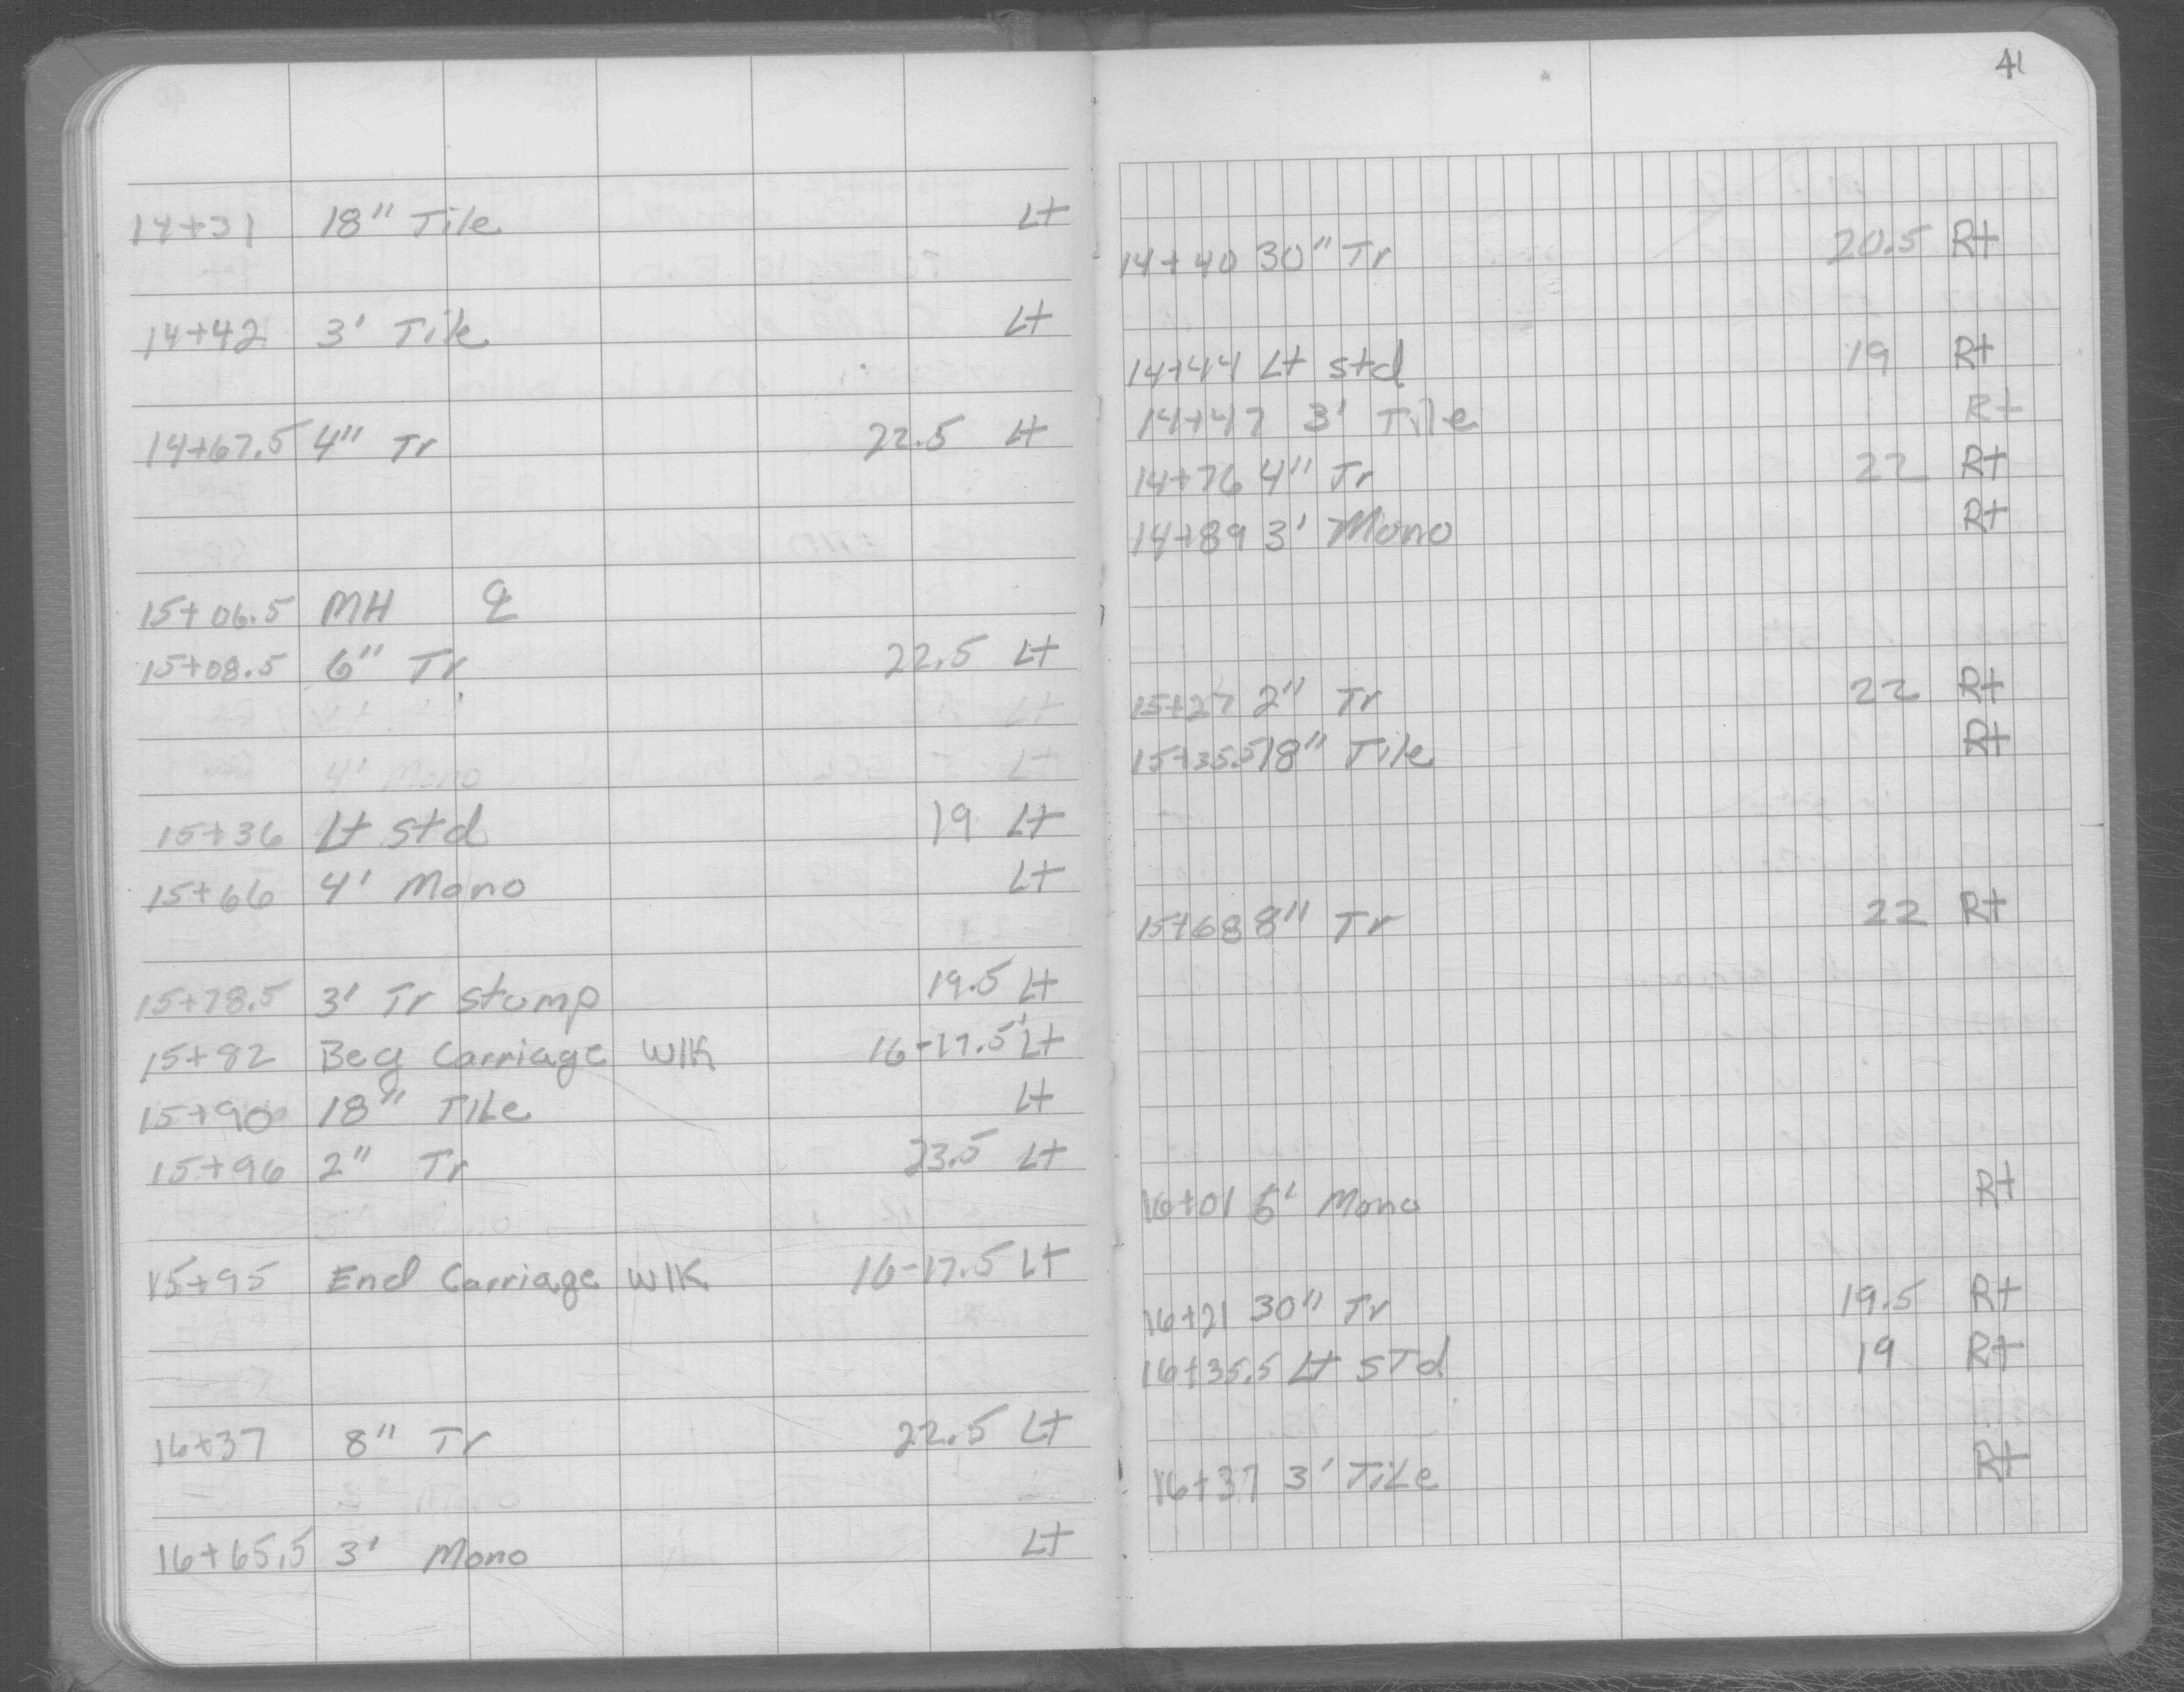 14+31 18" Tile Lt
14+42 3' Tile Lt
14+67.5 4" Tr 22.5 Lt
15+06.5 MH ℄
15+08.5 6" Tr 22.5 Lt
Lt
4' Mono Lt
15+36 Lt std 19 Lt
15+66 4' Mono Lt
15+78.5 3' Tr stump 19.5 Lt
15+82 Beg Carriage Wlk 16-17.5' Lt
15+90 18" TILe Lt
15+96 2" Tr 23.5 Lt
15+95 End Carriage Wlk 16-17.5 Lt
16+37 8" Tr 22.5 Lt
16+65.5 3' Mono Lt
41
14+40 30" Tr 20.5 Rt
14+44 Lt std 19 Rt
14+47 3' Tile Rt
14+76 4" Tr 22 Rt
14+89 3' Mono Rt
15+27 2" Tr 22 Rt
15+35.5 18" Tile Rt
15+68 8" Tr 22 Rt
16+01 5' Mono Rt
16+21 30" Tr 19.5 Rt
16+35.5 Lt sTd 19 Rt
16+37 3' TiLe Rt